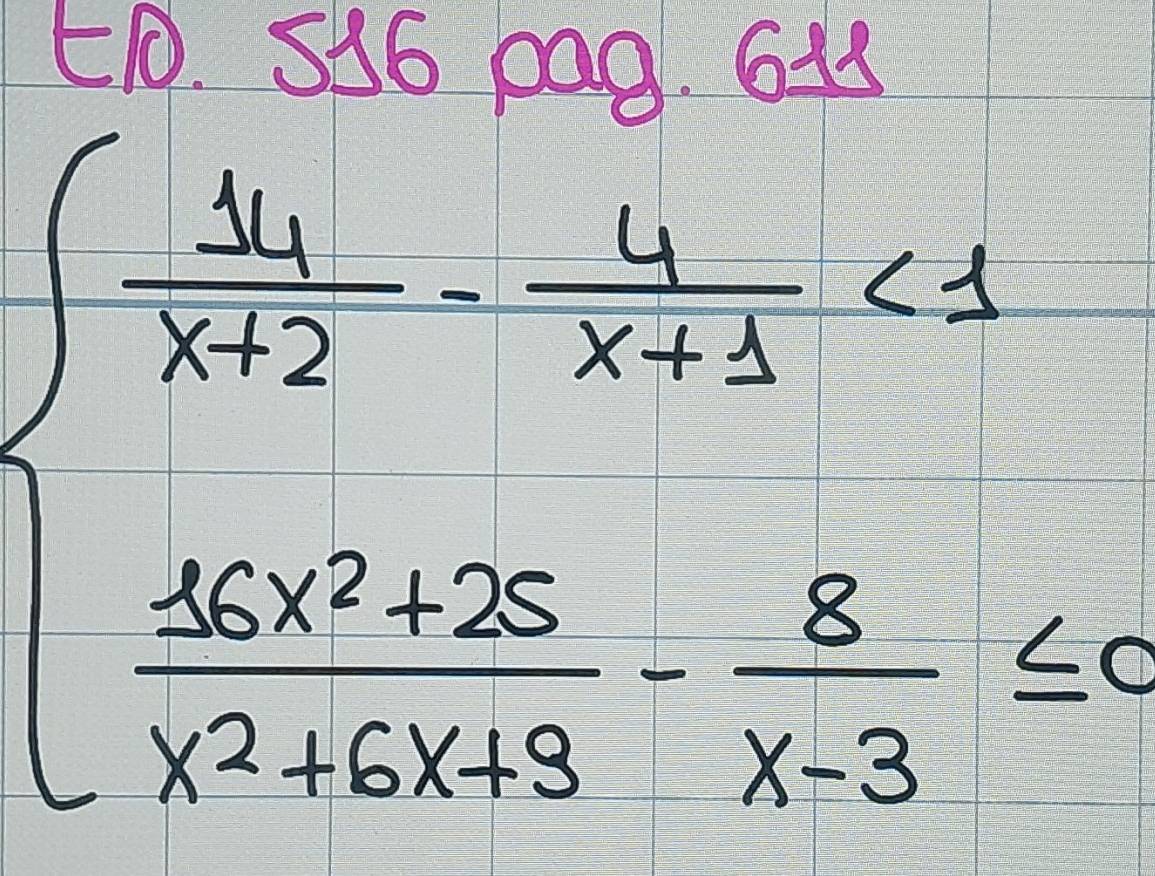 ED. 516 pag. 611
{ 14/(x+2) - 4/(x+1) < 1
(16x² + 25)/(x² + 6x + 9) - 8/(x - 3) ≤ 0